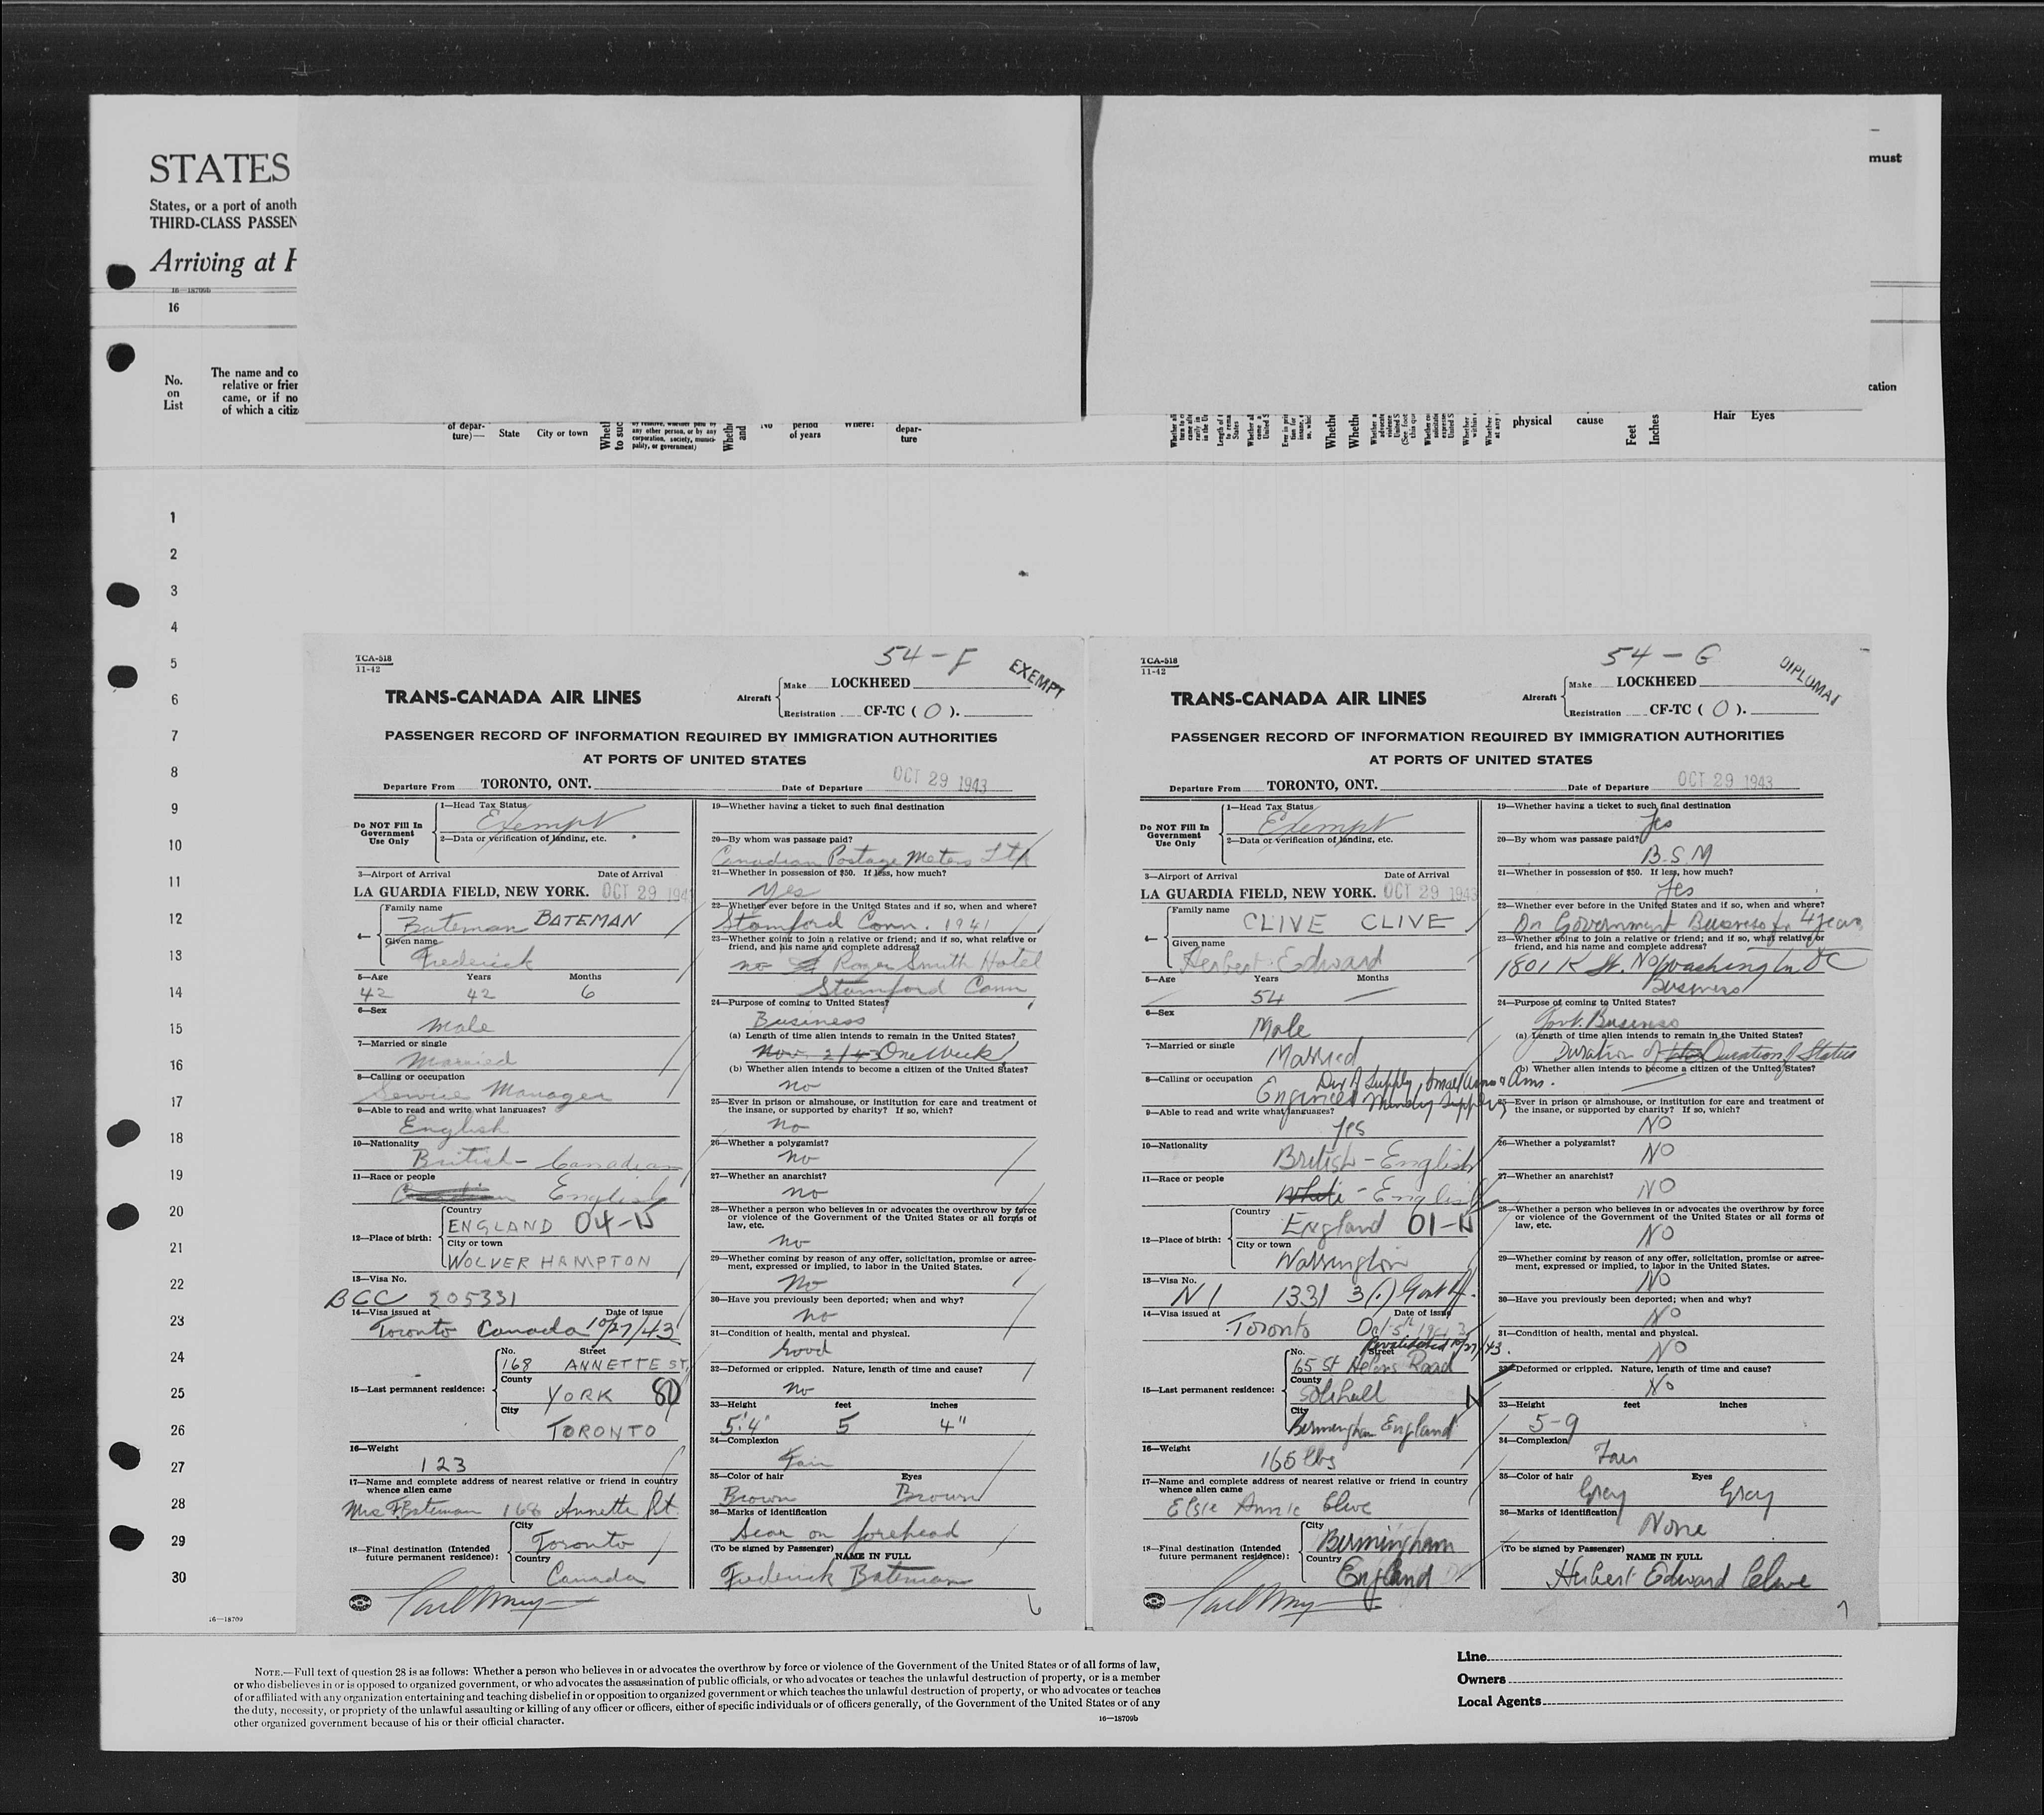 STATES
States, or a port of anoth
THIRD-CLASS PASSEN
Arriving at
16—18709b
16
No.
on
List
The name and co
relative or frier
came, or if no
of which a citiz
of depar-
ture)—
State
City or town
any other person, or by any
corporation, society, munici-
pality, or government)
and
No
period
of years
Where?
depar-
ture
must
cation
physical
cause
Feet
Inches
Hair Eyes
1
2
3
4
5
6
7
8
9
10
11
12
13
14
15
16
17
18
19
20
21
22
23
24
25
26
27
28
29
30
16—18709
TCA-518
11-42
54-F
EXEMPT
TRANS-CANADA AIR LINES
Aircraft
Make LOCKHEED
Registration CF-TC ( O ).
PASSENGER RECORD OF INFORMATION REQUIRED BY IMMIGRATION AUTHORITIES
AT PORTS OF UNITED STATES
Departure From TORONTO, ONT. Date of Departure OCT 29 1943
Do NOT Fill In
Government
Use Only
1—Head Tax Status
Exempt
2—Data or verification of landing, etc.
3—Airport of Arrival Date of Arrival
LA GUARDIA FIELD, NEW YORK. OCT 29 194
4—
Family name
Bateman BATEMAN
Given name
Frederick
5—Age Years Months
42 42 6
6—Sex
Male
7—Married or single
Married
8—Calling or occupation
Service Manager
9—Able to read and write what languages?
English
10—Nationality
British - Canadian
11—Race or people
English
12—Place of birth:
Country
ENGLAND 04-N
City or town
WOLVERHAMPTON
13—Visa No.
BCC 205331
14—Visa issued at Date of issue
Toronto Canada 10/27/43
15—Last permanent residence:
No. Street
168 ANNETTE ST.
County
YORK 80
City
TORONTO
16—Weight
123
17—Name and complete address of nearest relative or friend in country
whence alien came
Mrs F. Bateman 168 Annette St.
18—Final destination (Intended
future permanent residence):
City
Toronto
Country
Canada
19—Whether having a ticket to such final destination
20—By whom was passage paid?
Canadian Postage Meters Ltd
21—Whether in possession of $50. If less, how much?
Yes
22—Whether ever before in the United States and if so, when and where?
Stamford Conn. 1941
23—Whether going to join a relative or friend; and if so, what relative or
friend, and his name and complete address?
no Roger Smith Hotel
Stamford Conn
24—Purpose of coming to United States?
Business
(a) Length of time alien intends to remain in the United States?
Nov. 2/43 One Week
(b) Whether alien intends to become a citizen of the United States?
no
25—Ever in prison or almshouse, or institution for care and treatment of
the insane, or supported by charity? If so, which?
no
26—Whether a polygamist?
no
27—Whether an anarchist?
no
28—Whether a person who believes in or advocates the overthrow by force
or violence of the Government of the United States or all forms of
law, etc.
no
29—Whether coming by reason of any offer, solicitation, promise or agree-
ment, expressed or implied, to labor in the United States.
No
30—Have you previously been deported; when and why?
no
31—Condition of health, mental and physical.
Good
32—Deformed or crippled. Nature, length of time and cause?
no
33—Height feet inches
5'.4" 5 4"
34—Complexion
Fair
35—Color of hair Eyes
Brown Brown
36—Marks of identification
Scar on forehead
(To be signed by Passenger)
NAME IN FULL
Frederick Bateman
6
TCA-518
11-42
54-G
DIPLOMAT
TRANS-CANADA AIR LINES
Aircraft
Make LOCKHEED
Registration CF-TC ( O ).
PASSENGER RECORD OF INFORMATION REQUIRED BY IMMIGRATION AUTHORITIES
AT PORTS OF UNITED STATES
Departure From TORONTO, ONT. Date of Departure OCT 29 1943
Do NOT Fill In
Government
Use Only
1—Head Tax Status
Exempt
2—Data or verification of landing, etc.
3—Airport of Arrival Date of Arrival
LA GUARDIA FIELD, NEW YORK. OCT 29 1943
4—
Family name
CLIVE CLIVE
Given name
Herbert Edward
5—Age Years Months
54
6—Sex
Male
7—Married or single
Married
8—Calling or occupation
Dir of Supply, Small Arms & Am.
Engineer Ministry Supply
9—Able to read and write what languages?
Yes
10—Nationality
British - English
11—Race or people
White - English
12—Place of birth:
Country
England 01-N
City or town
Warrington
13—Visa No.
N1 1331 3(1) Govt
14—Visa issued at Date of issue
Toronto Oct 5th
Revalidated 10/27/43.
15—Last permanent residence:
No. Street
65 St Helens Road
County
Solihull N
City
Birmingham England
16—Weight
165 lbs
17—Name and complete address of nearest relative or friend in country
whence alien came
Elsie Annie Clive
18—Final destination (Intended
future permanent residence):
City
Birmingham
Country
England
19—Whether having a ticket to such final destination
Yes
20—By whom was passage paid?
B.S.M
21—Whether in possession of $50. If less, how much?
Yes
22—Whether ever before in the United States and if so, when and where?
On Government Business for 4 years
23—Whether going to join a relative or friend; and if so, what relative or
friend, and his name and complete address?
1801 K St. NW Washington DC
Business
24—Purpose of coming to United States?
Govt. Business
(a) Length of time alien intends to remain in the United States?
Duration of Duration of Status
(b) Whether alien intends to become a citizen of the United States?
25—Ever in prison or almshouse, or institution for care and treatment of
the insane, or supported by charity? If so, which?
NO
26—Whether a polygamist?
NO
27—Whether an anarchist?
NO
28—Whether a person who believes in or advocates the overthrow by force
or violence of the Government of the United States or all forms of
law, etc.
NO
29—Whether coming by reason of any offer, solicitation, promise or agree-
ment, expressed or implied, to labor in the United States.
NO
30—Have you previously been deported; when and why?
NO
31—Condition of health, mental and physical.
NO
32—Deformed or crippled. Nature, length of time and cause?
No
33—Height feet inches
5-9
34—Complexion
Fair
35—Color of hair Eyes
Grey Grey
36—Marks of identification
None
(To be signed by Passenger)
NAME IN FULL
Herbert Edward Clive
7
NOTE.—Full text of question 28 is as follows: Whether a person who believes in or advocates the overthrow by force or violence of the Government of the United States or of all forms of law,
or who disbelieves in or is opposed to organized government, or who advocates the assassination of public officials, or who advocates or teaches the unlawful destruction of property, or is a member
of or affiliated with any organization entertaining and teaching disbelief in or opposition to organized government or which teaches the unlawful destruction of property, or who advocates or teaches
the duty, necessity, or propriety of the unlawful assaulting or killing of any officer or officers, either of specific individuals or of officers generally, of the Government of the United States or of any
other organized government because of his or their official character.
16—18709b
Line
Owners
Local Agents